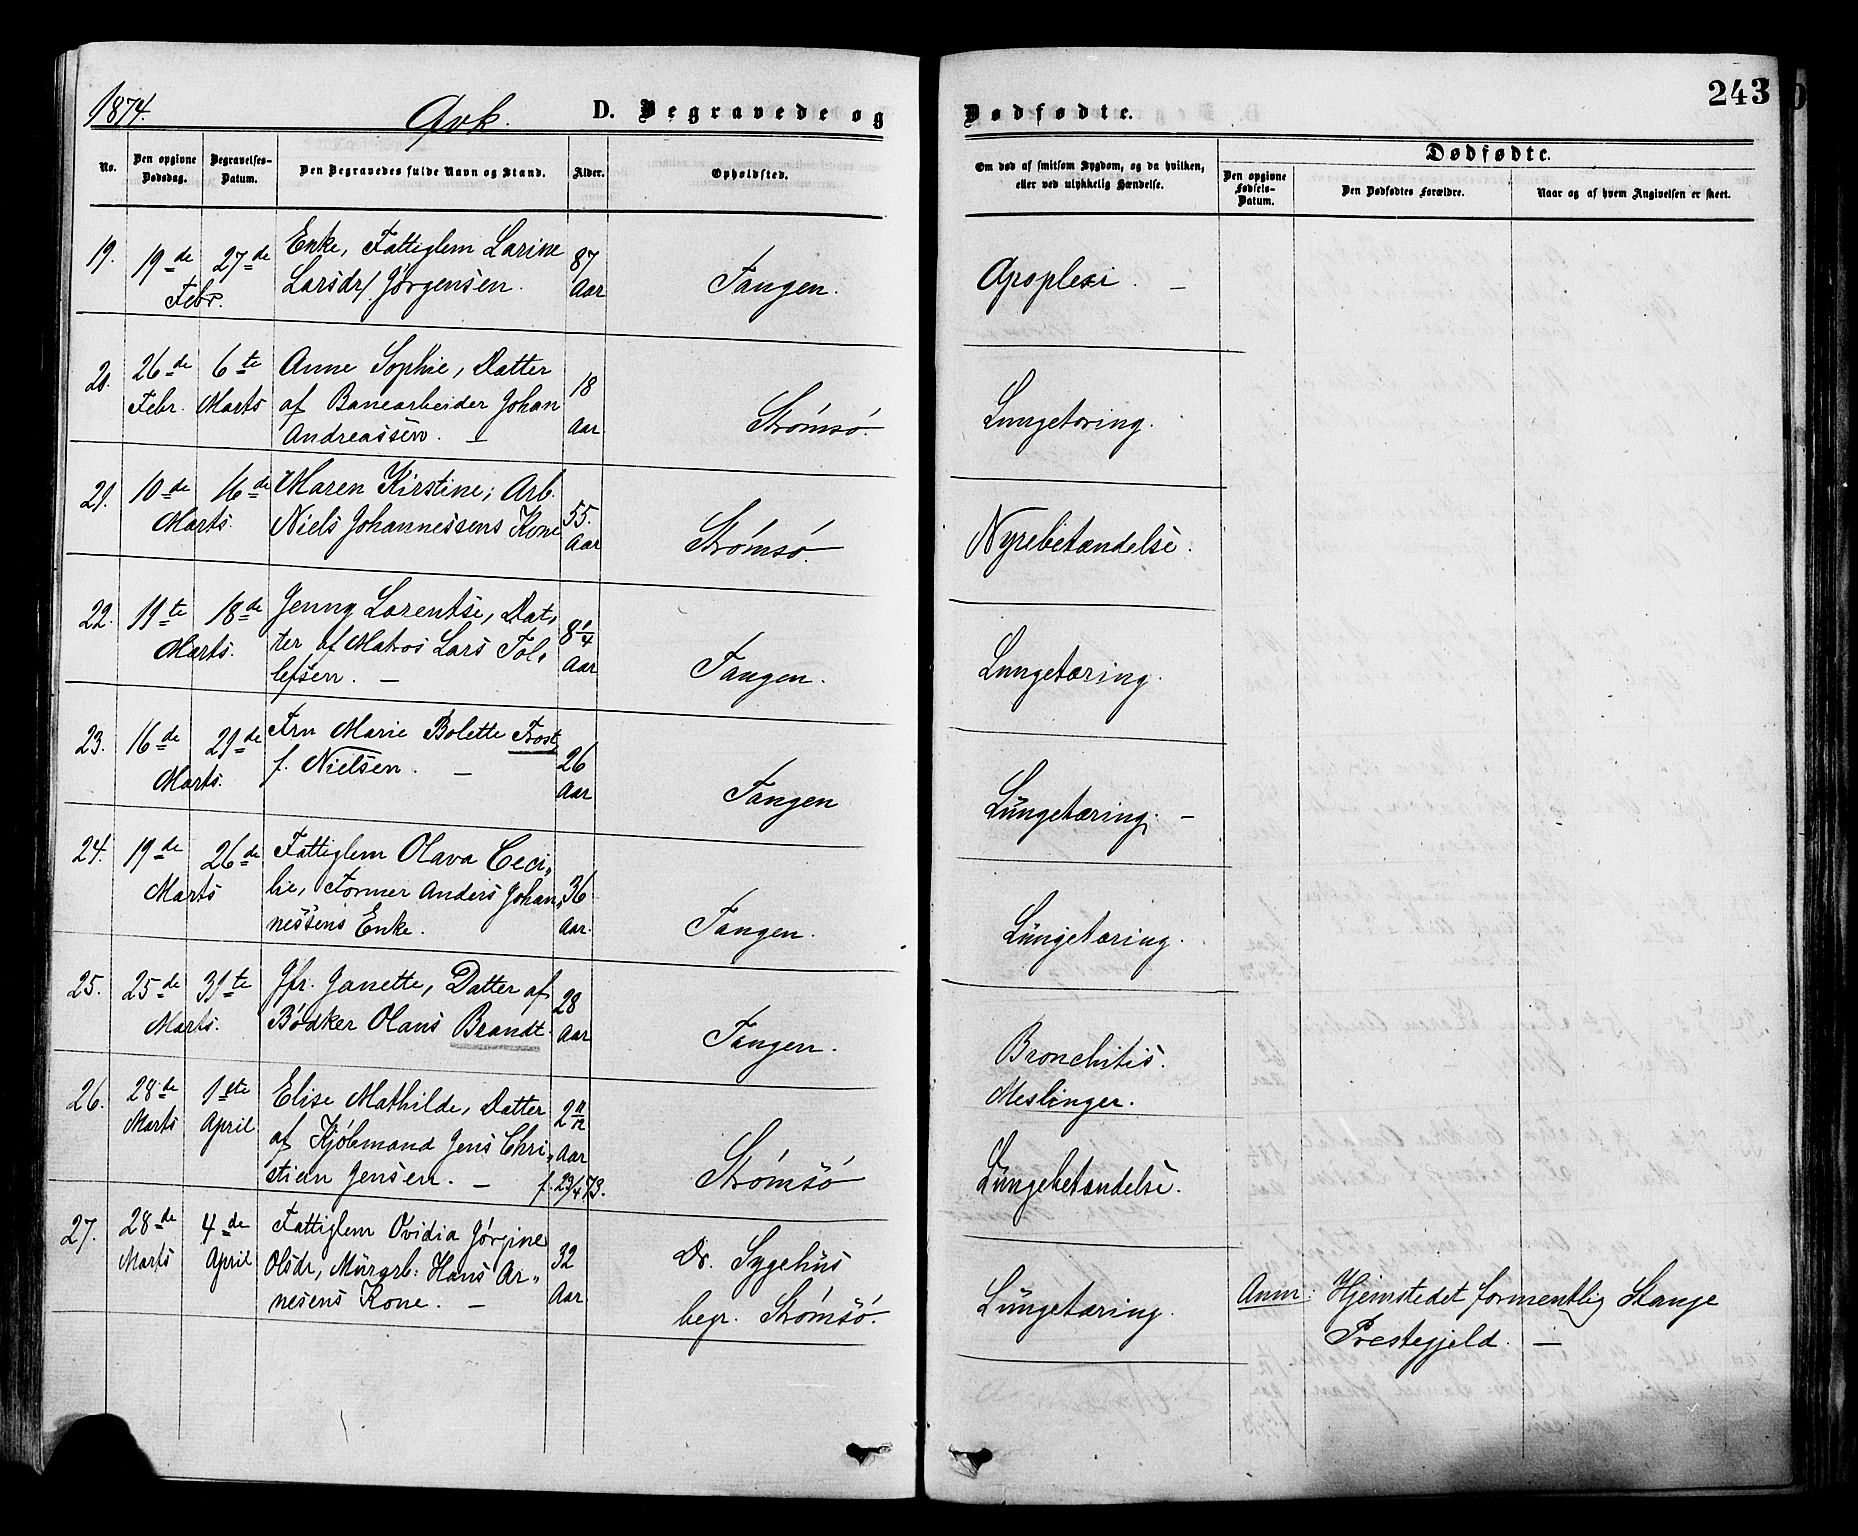 1874. Qvk. D. Begravede og Dødfødte. 243
No.
Den opgivne Dødsdag.
Begravelses-Datum.
Den Begravedes fulde Navn og Stand.
Alder.
Opholdsted.
Om død af smitsom Sygdom, og da hvilken,
eller ved ulykkelig Hændelse.
Dødfødte.
Den opgivne Fødsels-Datum.
Den Dødfødtes Forældre.
Naar og af hvem Angivelsen er skeet.
19. 19de 27de Enke, Fattiglem Larine 87
Febr. Larsdr/ Jørgensen. Aar Tangen. Apoplexi. —
20. 26de 6te Anne Sophie, Datter 18
Febr. Marts af Banearbeider Johan
Andreassen. — Aar Strømsø. Lungetæring.
21. 10de 16de Maren Kirstine, Arb. 55.
Marts. Niels Johannessens Kone Aar Strømsø. Nyrebetændelse.
22. 11te 18de Jenny Larentse, Dat„ 8 1/4
Marts. ter af Matros Lars Tol„ Aar
lefsen. — Tangen. Lungetæring.
23. 16de 21de Fru Marie Bolette Frost 26
Marts. f. Nielsen. — Aar Tangen Lungetæring. —
24. 19de 26de Fattiglem Olava Ceci„
Marts lie, Former Anders Johan„ 36
nessens Enke. Aar. Tangen. Lungetæring.
25. 25de 31te Jfr. Janette, Datter af 28
Marts. Bødker Olaus Brandt. Aar Tangen. Bronchitis.
26. 28de 1ste Elise Mathilde, Datter 2 11/12 Meslinger.
Marts April af Kjøbmand Jens Chri„ Aar
stian Jensen. — f. 29/4 73. Strømsø Lungebetændelse.
27. 28de 4de Fattiglem Ovidia Jørgine
Marts April Olsdr, Mürarb: Hans Ar„ 32 Dr. Sygehus
nesens Kone. — Aar begr. Strømsø. Lungetæring. Anm: Hjemstedet formentlig Stange
Prestegjeld. —